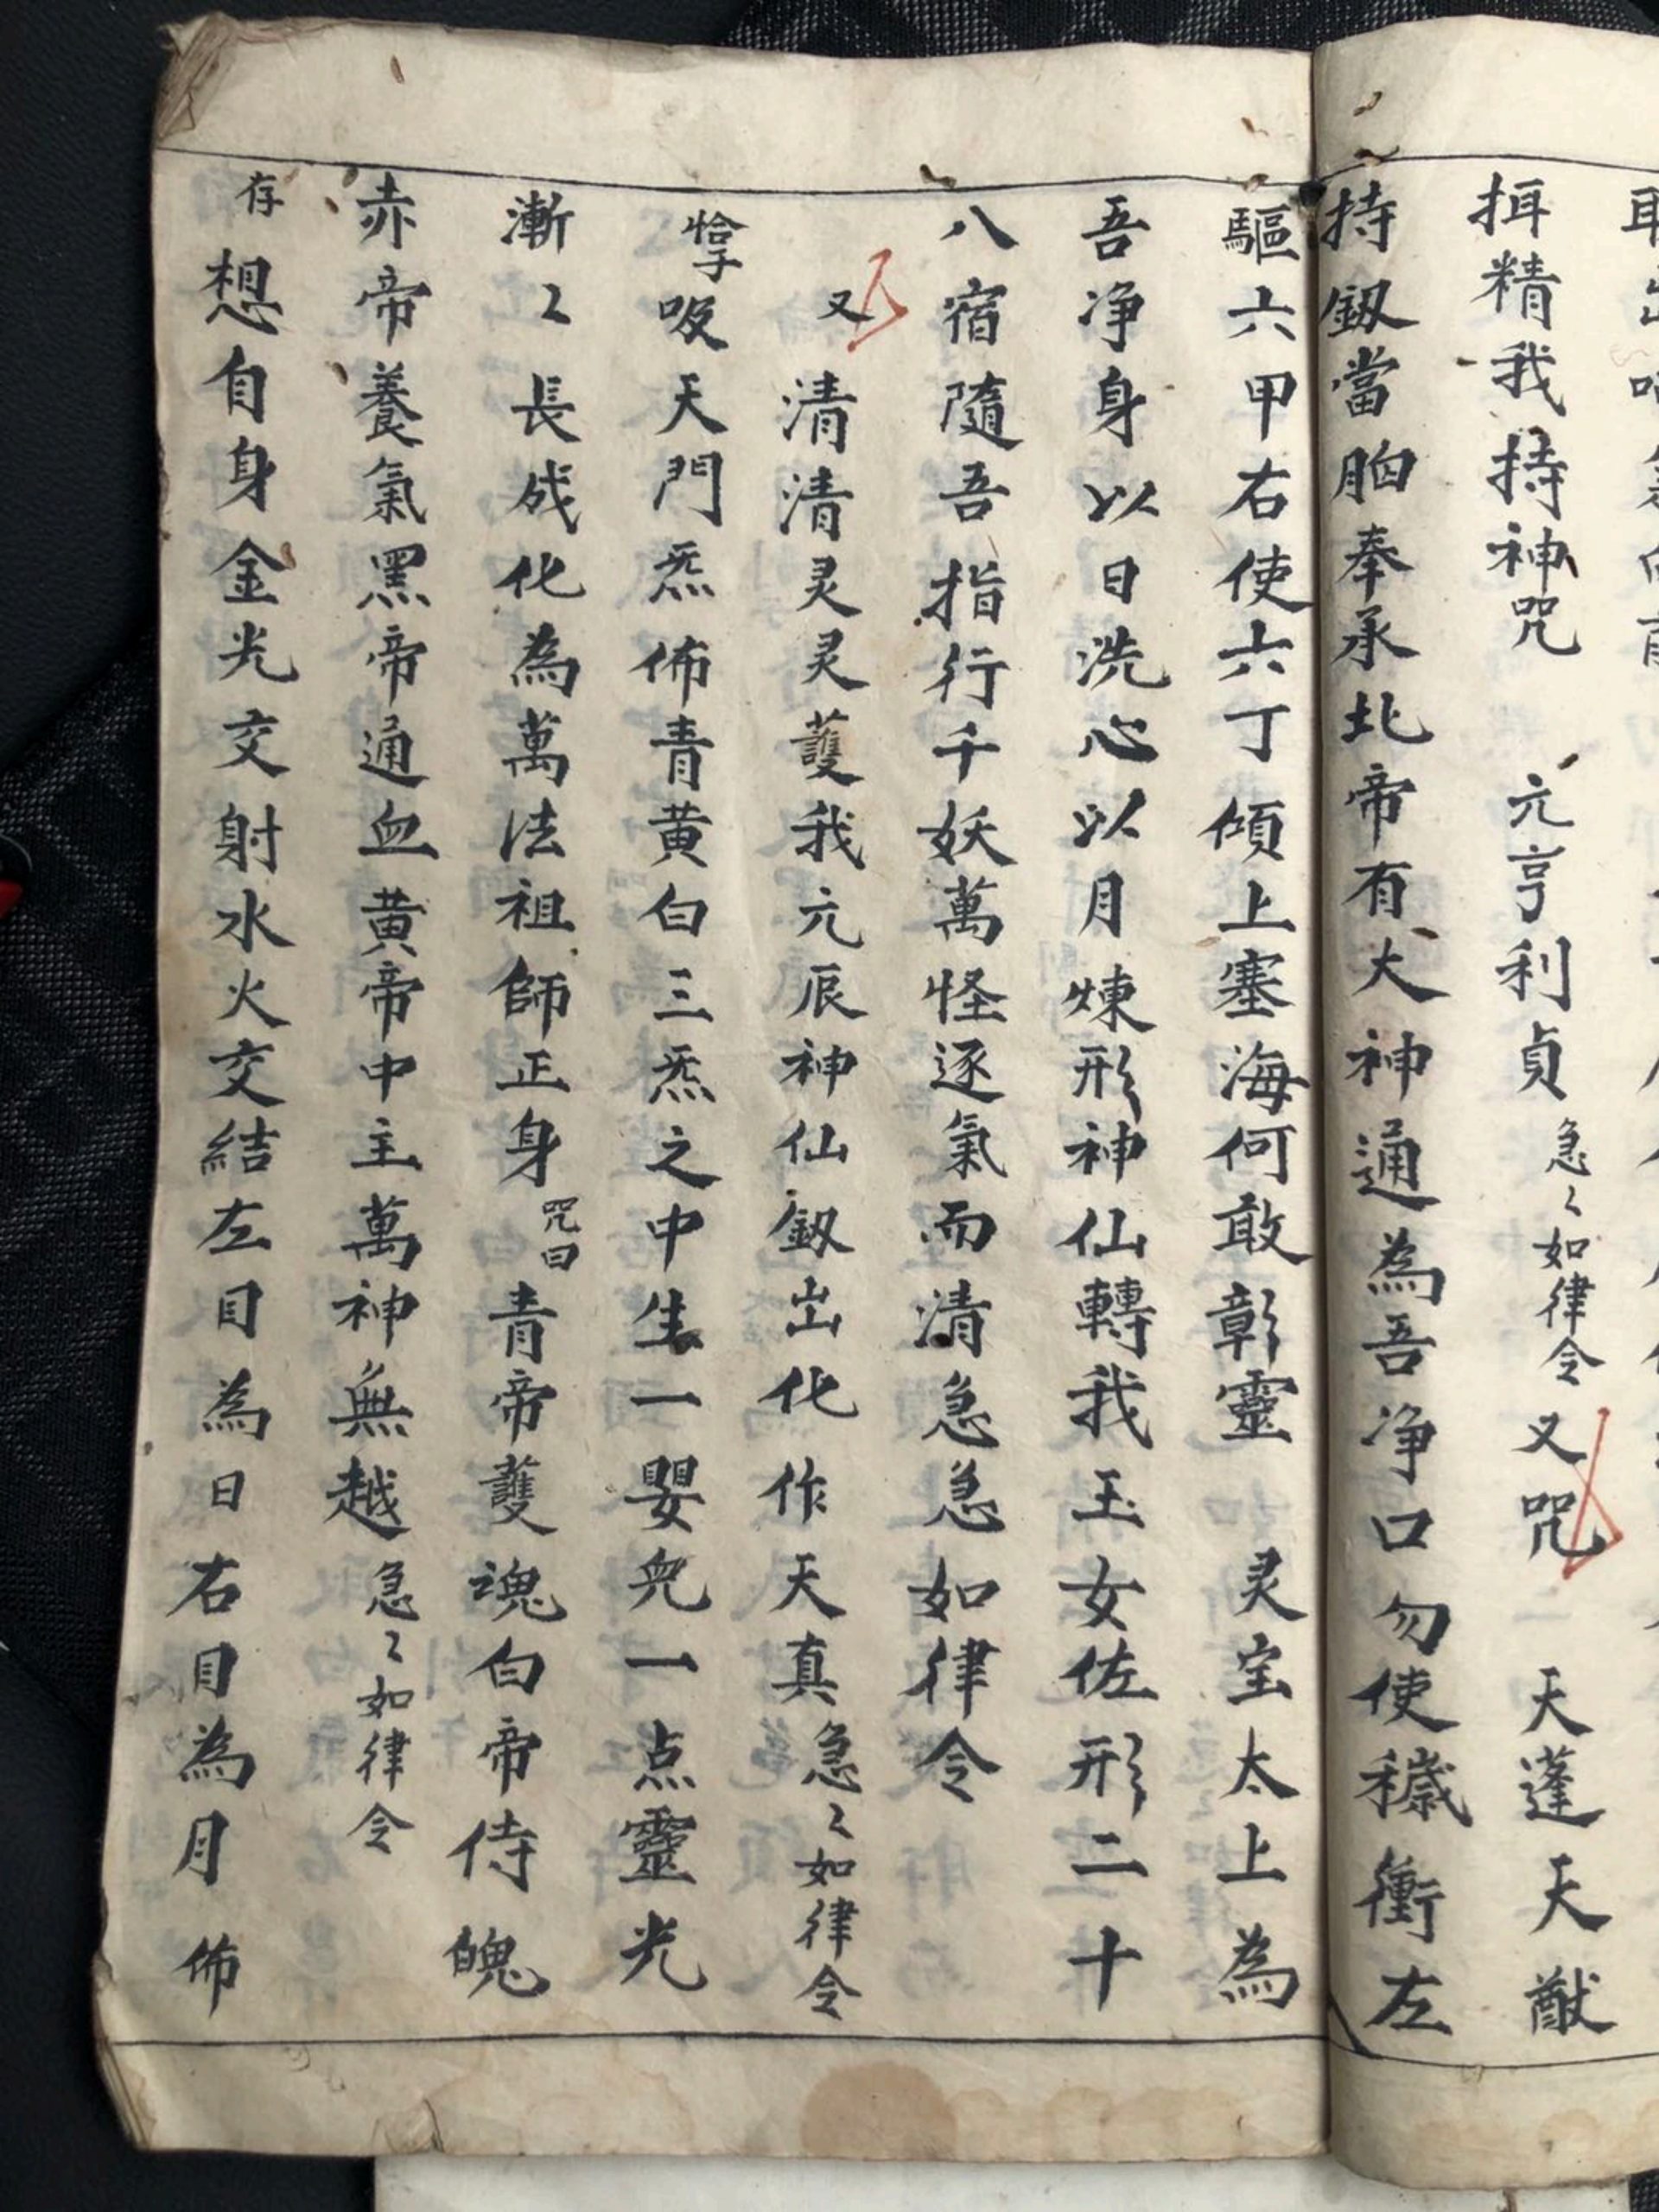 揖精我持神咒 元亨利貞 急〻如律令 又咒 天蓬天猷
持釼當胸奉承北帝有大神通為吾净口勿使穢衝左
驅六甲右使六丁傾上塞海何敢彰靈 灵宝太上為
吾净身以日洗心以月煉形神仙轉我玉女佐形二十
八宿隨吾指行千妖萬怪逐氣而清急急如律令
又 清清灵灵護我元辰神仙釼出化作天真 急〻如律令
吸天門炁佈青黄白三炁之中生一嬰兒一点靈光
漸〻長成化為萬法祖師正身 咒曰 青帝護魂白帝侍魄
赤帝養氣黑帝通血黄帝中主萬神無越 急〻如律令
存想自身金光交射水火交結左目為日右目為月佈